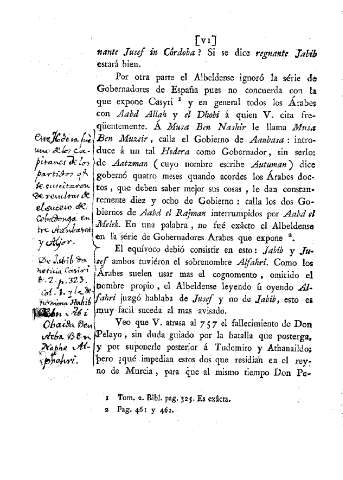 [VI]
nante Jusef in Córdoba? Si se dice regnante Jabib
estará bien.
Por otra parte el Albeldense ignoró la série de
Gobernadores de España pues no concuerda con la
que expone Casyri ¹ y en general todos los Árabes
con Aabd Allah y el Dhobi á quien V. cita fre-
qüentemente. Á Musa Ben Nashir le llama Musa
Ben Muzeir, calla el Gobierno de Aanbasa: intro-
duce á un tal Jedera como Gobernador, sin serlo:
de Aatzman (cuyo nombre escribe Autuman) dice
gobernó quatro meses quando acordes los Árabes doc-
tos, que deben saber mejor sus cosas, le dan constan-
temente diez y ocho de Gobierno: calla los dos Go-
biernos de Aabd el Rajman interrumpidos por Aabd el
Melek. En una palabra, no fué exâcto el Albeldense
en la série de Gobernadores Árabes que expone ².
El equívoco debió consistir en esto: Jabib y Ju-
sef ambos tuviéron el sobrenombre Alfahri. Como los
Árabes suelen usar mas el cognomento, omitido el
nombre propio, el Albeldense leyendo ú oyendo Al-
fahri juzgó hablaba de Jusef y no de Jabib, esto es
muy facil suceda al mas avisado.
Veo que V. atrasa al 757 el fallecimiento de Don
Pelayo, sin duda guiado por la batalla que posterga,
y por suponerle posterior á Tudemiro y Athanaildo;
pero ¿qué impedian estos dos que residían en el rey-
no de Murcia, para que al mismo tiempo Don Pe-
1 Tom. 2. Bibl. pag. 325. Es exâcta.
2 Pag. 461 y 462.
uno de los Ca-
pitanes de los
partidos qe
se suscitaron
de resultas de
el suceso de
Cobadonga en
tre Aanbasa
y Ajor.
De Jabib da
noticia Casiri
t. 2. p. 325.
Col. 1. y le de
termina Habib
Ben Abi
Obaida Ben
Acba Ben
Naphe Al-
phahri.